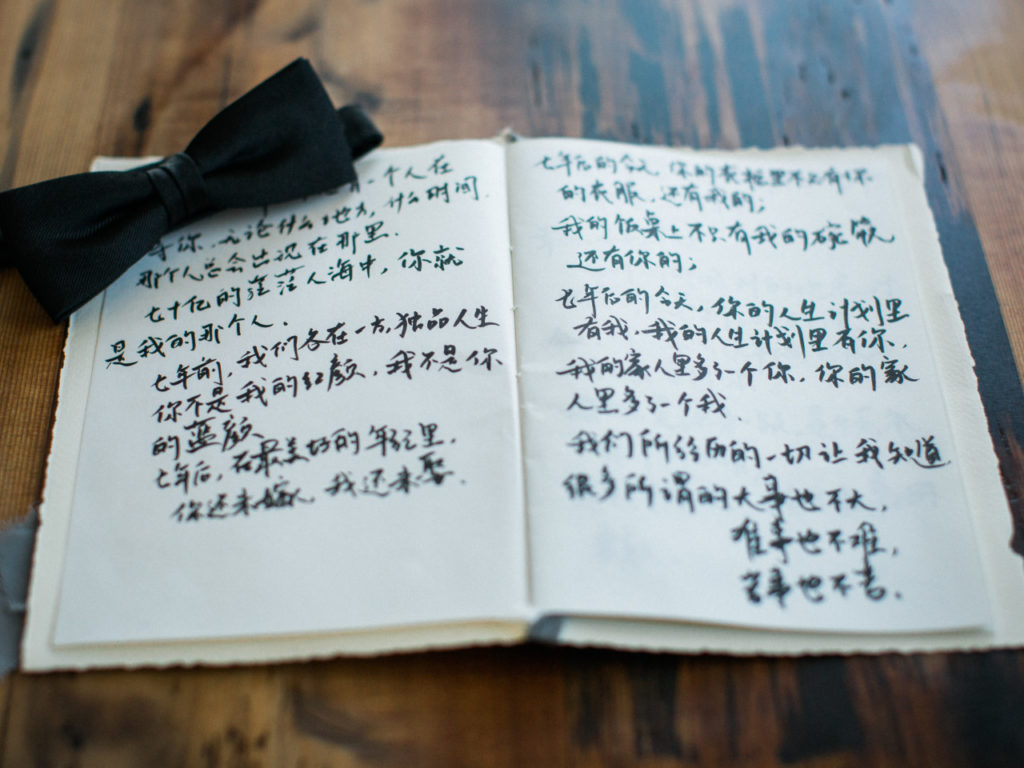 一个人在
等你,无论什么地方,什么时间.
那个人总会出现在那里.
七十亿的茫茫人海中,你就
是我的那个人.
七年前,我们各在一方,独品人生
你不是我的红颜,我不是你
的蓝颜.
七年后,在最美好的年轮里,
你还未嫁,我还未娶.
七年后的今天,你的衣柜里不只有你
的衣服,还有我的;
我的饭桌上不只有我的碗筷
还有你的;
七年后的今天,你的人生计划里
有我,我的人生计划里有你,
我的家人里多了一个你,你的家
人里多了一个我.
我们所经历的一切让我知道
很多所谓的大事也不大,
难事也不难,
苦事也不苦.